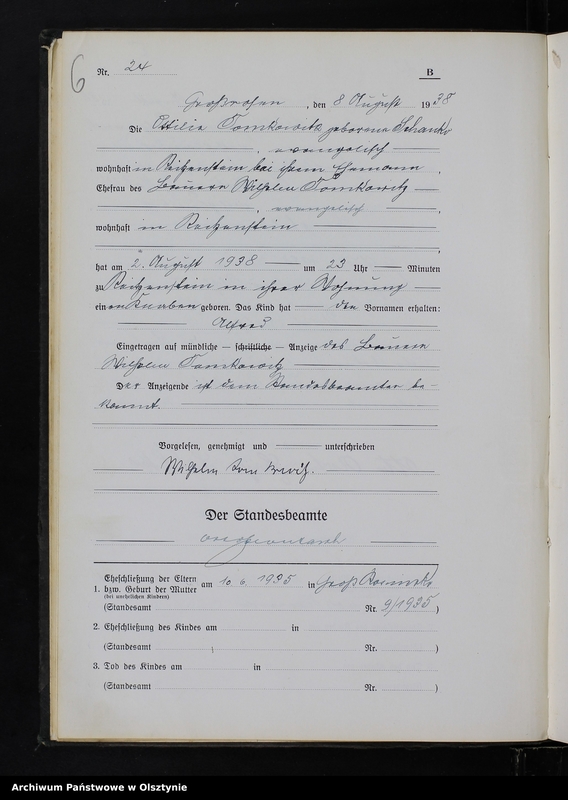 6
Nr. 24 B
Großrosen, den 8 August 1938
Die Ottilie Tomkowitz geborene
evangelisch
wohnhaft in Reitzenstein bei ihrem Ehemann,
Ehefrau des Bauern Wilhelm Tomkowitz
, evangelisch,
wohnhaft in Reitzenstein
hat am 2. August 1938 um 23 Uhr Minuten
zu Reitzenstein in ihrer Wohnung
einen Knaben geboren. Das Kind hat den Vornamen erhalten:
Alfred
Eingetragen auf mündliche — schriftliche — Anzeige des Bauern
Wilhelm Tomkowitz
Der Anzeigende ist dem Standesbeamten be-
kannt.
Vorgelesen, genehmigt und unterschrieben
Wilhelm Tomkowitz.
Der Standesbeamte
1. Eheschließung der Eltern
bzw. Geburt der Mutter am 10. 6. 1935 in Groß
(bei unehelichen Kindern)
(Standesamt Nr. 9/1935)
2. Eheschließung des Kindes am in
(Standesamt Nr. )
3. Tod des Kindes am in
(Standesamt Nr. )
Archiwum Państwowe w Olsztynie